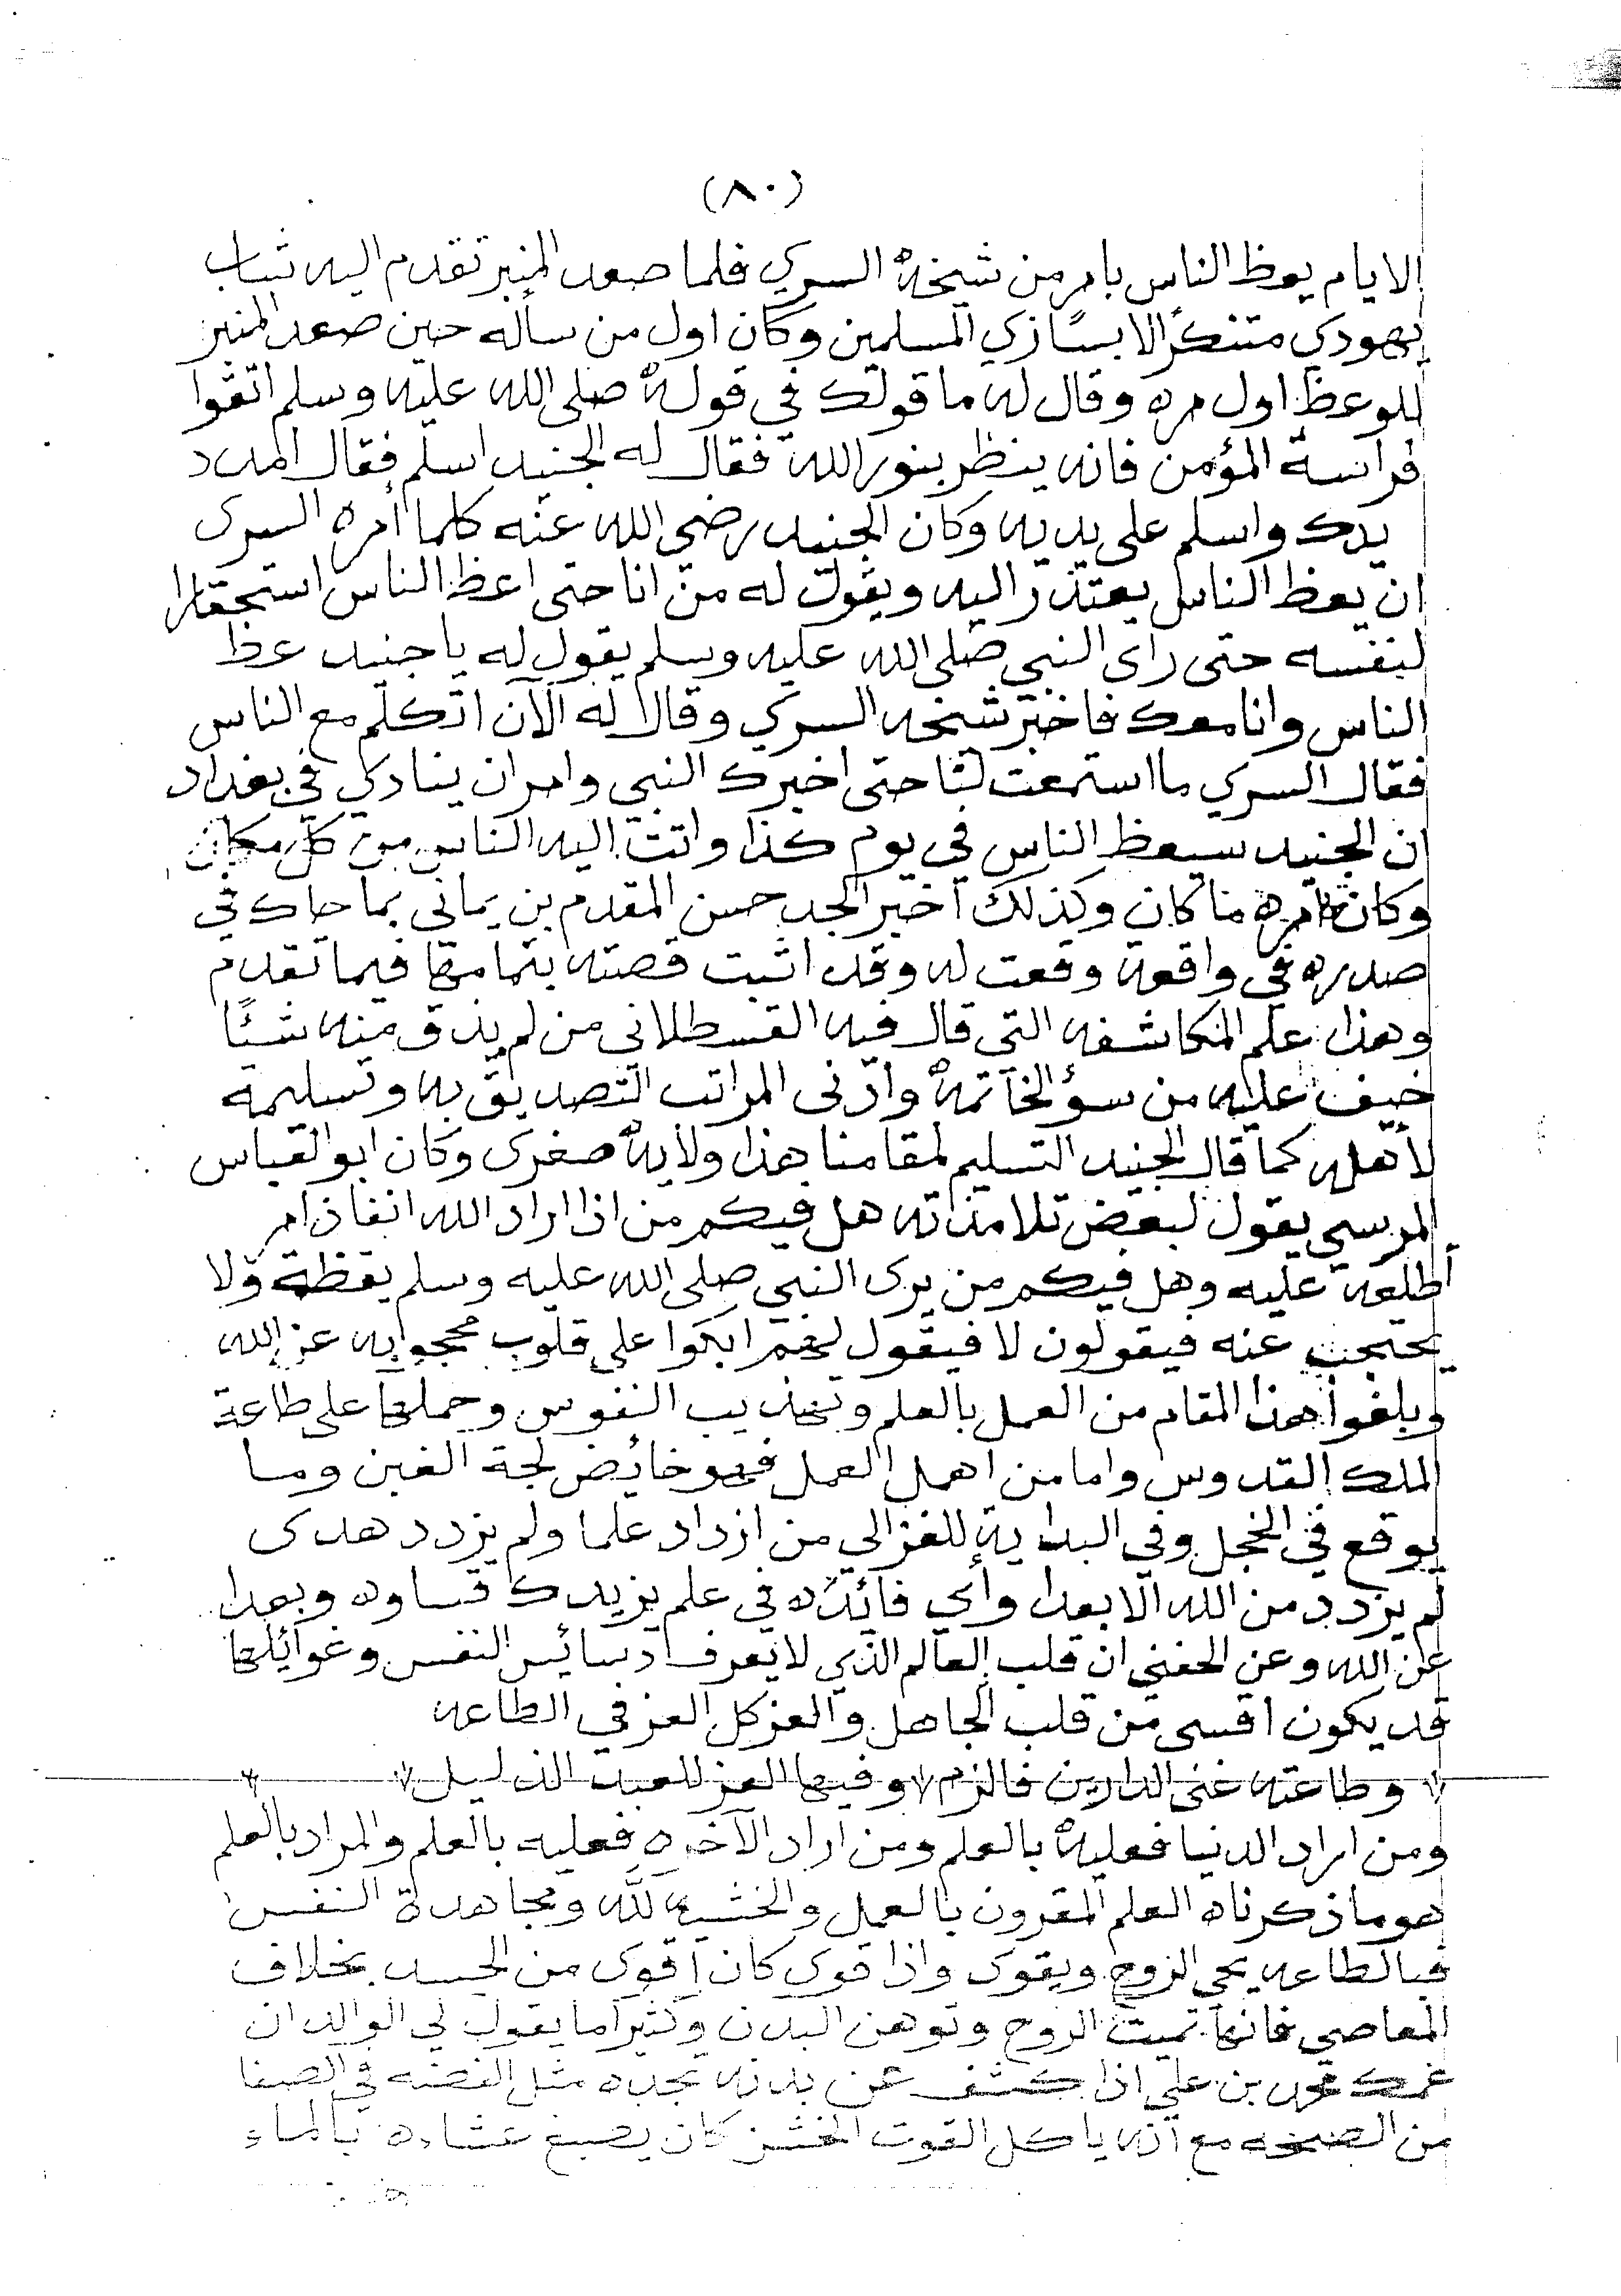 (٨٠)
الايام يعظ الناس بامر من شيخه السري فلما صعد المنبر تقدم اليه شاب
يهودي متنكرا لابسًا زي المسلمين وكان اول من سأله حين صعد المنبر
للوعظ اول مره وقال له ما قولك في قوله صلى الله عليه وسلم اتقوا
فراسة المؤمن فانه ينظر بنور الله فقال له الجنيد اسلم فقال امدد
يدك واسلم على يديه وكان الجنيد رضي الله عنه كلما أمره السرى
ان يعظ الناس يعتذر اليه ويقول له من انا حتى اعظ الناس استحقارا
لنفسه حتى راى النبي صلى الله عليه وسلم يقول له يا جنيد عظ
الناس وانا معك فاخبر شيخه السري وقال له الآن اتكلم مع الناس
فقال السري ما استمعت لنا حتى اخبرك النبي وامر ان ينادي في بغداد
ان الجنيد سيعظ الناس في يوم كذا واتت اليه الناس من كل مكان
وكان امره ما كان وكذلك اخبر الجد حسن المقدم بن يماني بما حاك في
صدره في واقعة وقعت له وقد اثبت قصته بتمامها فيما تقدم
وهذا علم المكاشفه التي قال فيه القسطلاني من لم يذق منه شئًا
خيف عليه من سؤ الخاتمة وادنى المراتب التصديق به وتسليمة
لأهله كما قال الجنيد التسليم لمقامنا هذا ولاية صغرى وكان ابو العباس
المرسي يقول لبعض تلامذاته هل فيكم من اذا اراد الله انفاذ امر
أطلعه عليه وهل فيكم من يرى النبي صلى الله عليه وسلم يقظة ولا
يحتجب عنه فيقولون لا فيقول لهم ابكوا على قلوب محجوبه عن الله
وبلغوا هذا المقام من العمل بالعلم وتهذيب النفوس وحملها على طاعة
الملك القدوس واما من اهمل العمل فهو خائض لجة الغين وما
يوقع في الخجل وفي البداية للغزالي من ازداد علما ولم يزدد هدى
لم يزدد من الله الا بعدا وأي فائده في علم يزيدك قساوه وبعدا
عن الله وعن الحفني ان قلب العالم الذي لا يعرف دسائس النفس وغوائلها
قد يكون اقسى من قلب الجاهل والعز كل العز في الطاعه
وطاعته غنى الدارين فالزم وفيها العز للعبد الذليل
ومن اراد الدنيا فعليه بالعلم ومن اراد الآخره فعليه بالعلم والمراد بالعلم
هو ما ذكرناه العلم المقرون بالعمل والخشيه لله ومجاهدة النفس
فبالطاعه يحي الروح ويقوى واذا قوى كان أقوى من الجسد بخلاف
المعاصي فانها تميت الروح وتوهن البدن وكثيرا ما يقول لي الوالد ان
عمك محمد بن علي اذا كشف عن بدنه تجده مثل الفضه في الصفا
من الصحه مع أنه ياكل القوت الخشن كان يصبغ عشاءه بالماء